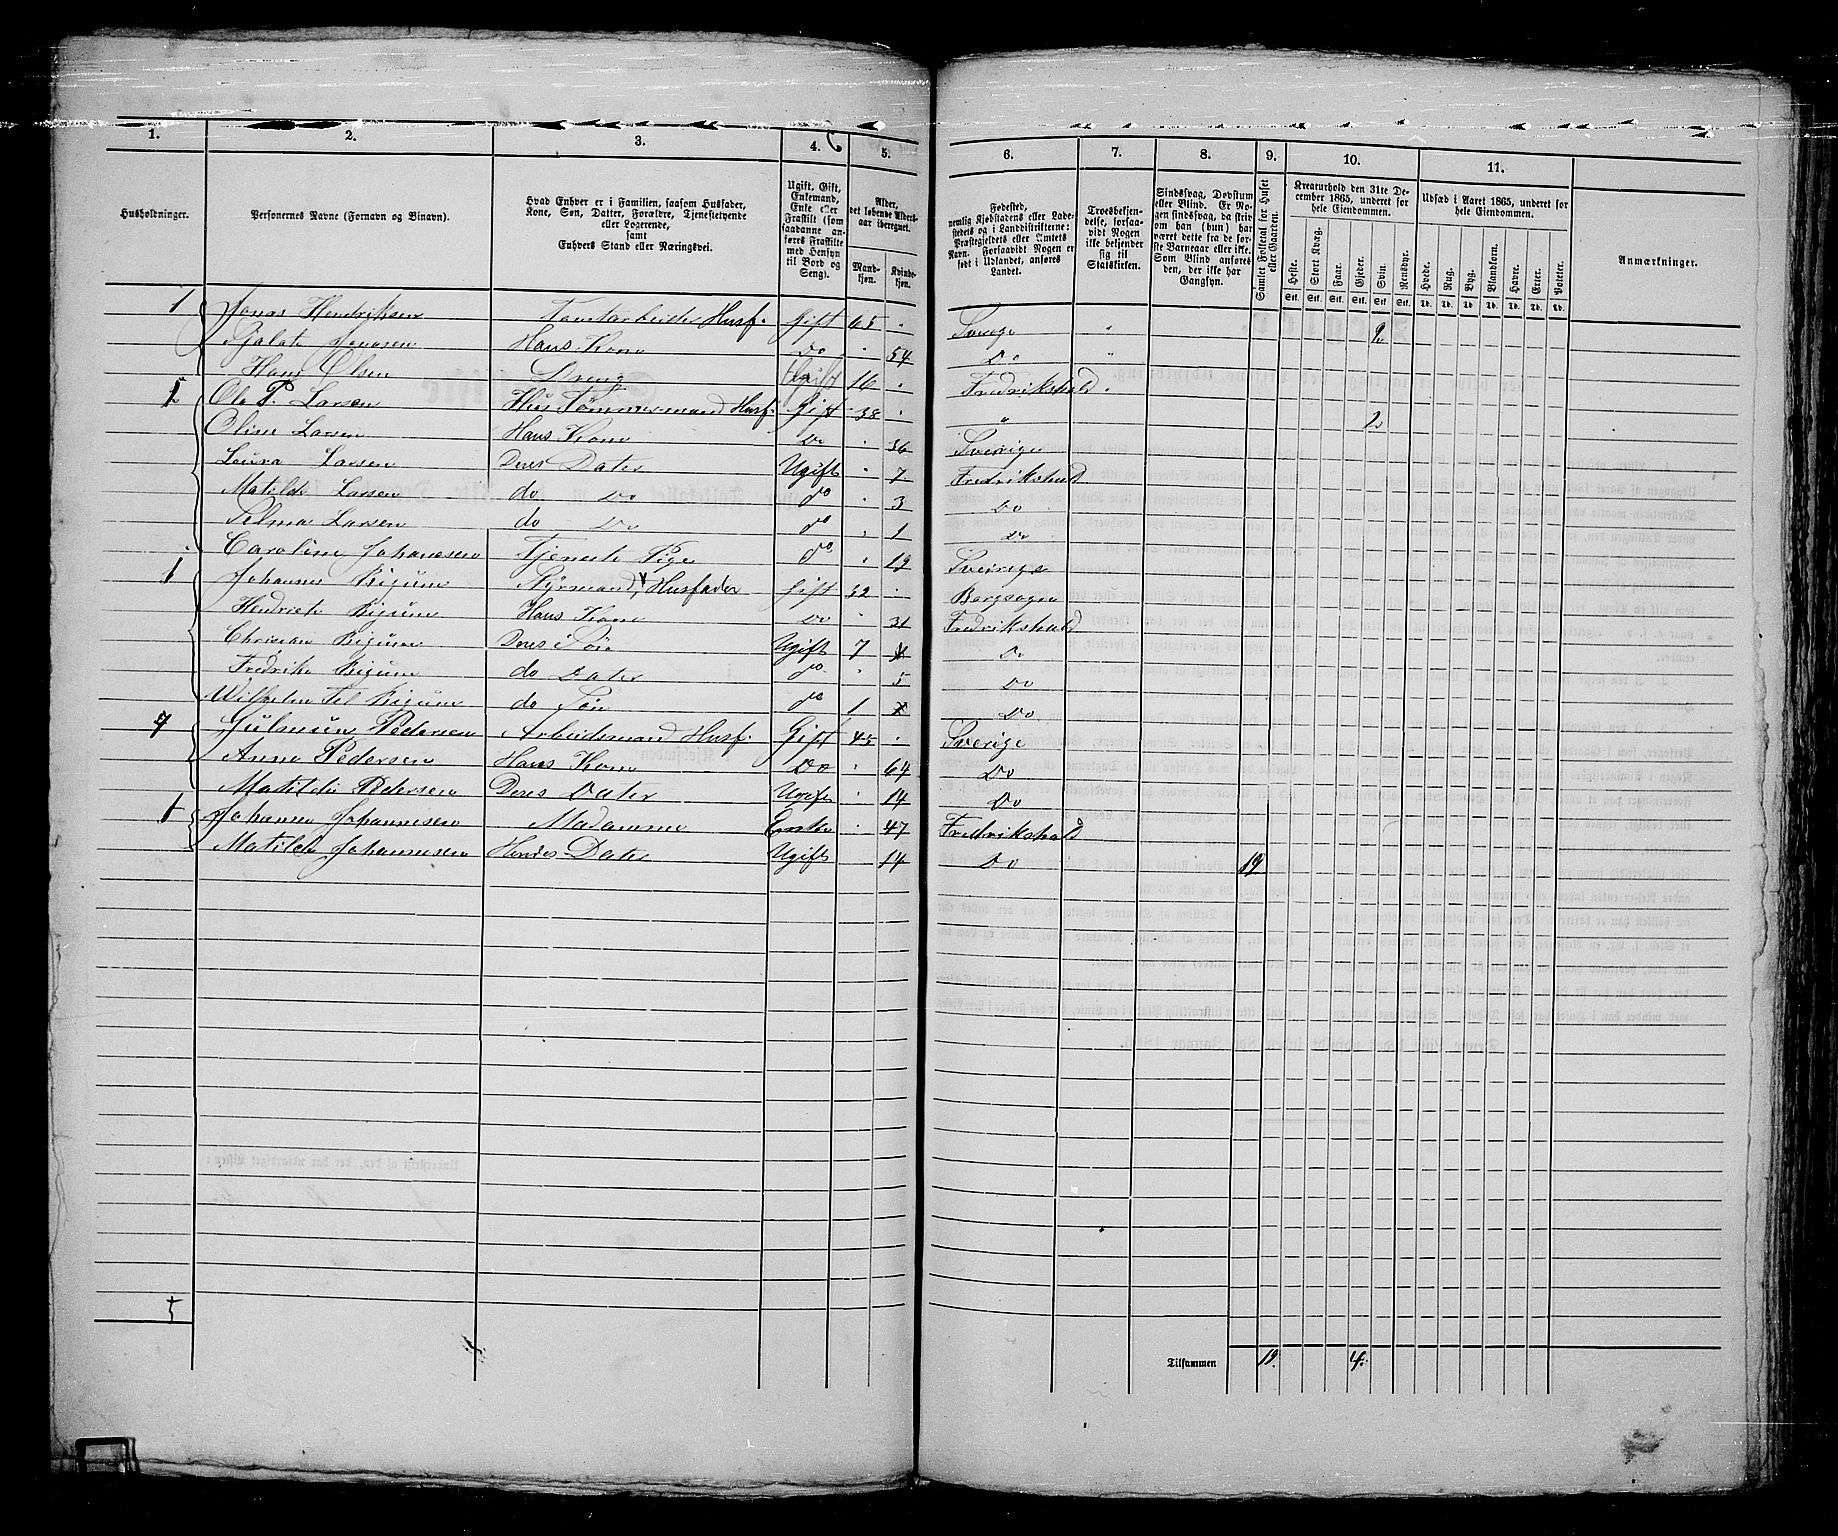 1. 2. 3. 4. 5. 6. 7. 8. 9. 10. 11.
Husholdninger.
Personernes Navne (Fornavn og Binavn).
Hvad Enhver er i Familien, saasom Husfader, Kone, Søn, Datter, Forældre, Tjenestetyende eller Logerende, samt Enhvers Stand eller Næringsvei.
Ugift, Gift, Enkemand, Enke eller Fraskilt (som saadanne anføres Fraskilte med Hensyn til Bord og Seng).
Alder, det løbende Aldersaar iberegnet.
Mandkjøn. Kvindekjøn.
Fødested, nemlig Kjøbstadens eller Ladestedets og i Landdistrikterne: Præstegjeldets eller Amtets Navn. Forsaavidt Nogen er født i Udlandet, anføres Landet.
Troesbekjendelse, forsaavidt Nogen ikke bekjender sig til Statskirken.
Sindssvag, Døvstum eller Blind. Er Nogen sindssvag, da skrives om han (hun) har været dette fra de første Barneaar eller ikke. Som Blind anføres den, der ikke har Gangsyn.
Samlet Folketal for Huset eller Gaarden.
Kreaturhold den 31te December 1865, underet for hele Eiendommen.
Udsæd i Aaret 1865, underet for hele Eiendommen.
Anmærkninger.
Heste. Stort Kvæg. Faar. Gjeder. Svin. Rensdyr. Hvede. Rug. Byg. Blandkorn. Havre. Erter. Poteter.
Stk. Stk. Stk. Stk. Stk. Stk. Td. Td. Td. Td. Td. Td. Td.
1 Jonas Hendriksen Husf. Gift 65 Sverige 2
Hans Kone Do 54 Do
Hans Olsen Dreng Ugift 16 Fredrikshald
1 Ole P. Larsen Tømmermand Husf. Gift 38 " 2
Oline Larsen Hans Kone Do 36 Sverige
Laura Larsen Deres Dater Ugift 7 Fredrikshald
Matilde Larsen do Do do 3 Do
Selma Larsen do Do do 1 Do
Caroline Johanesen Tjeneste Pige do 19 Sverige
1 Johannes Bigum Styrmand, Husfader Gift 32 Borgsogn
Hendriete Bigum Hans Kone Do 31 Fredrikshald
Christian Bigum Deres Søn Ugift 7 Do
Fredrike Bigum do Dater do 5 Do
Wilhelm Bigum do Søn do 1 Do
Pedersen Arbeidsmand Husf. Gift 45 Sverige
Anne Pedersen Hans Kone Do 64 Do
Matilde Pedersen Deres Dater Ugift 14 Do
1 Johanne Johannesen Madamme Enke 47 Fredrikshald
Matilde Johannesen Hendes Dater Ugift 14 Do 19
5
Tilsammen 19. 4.